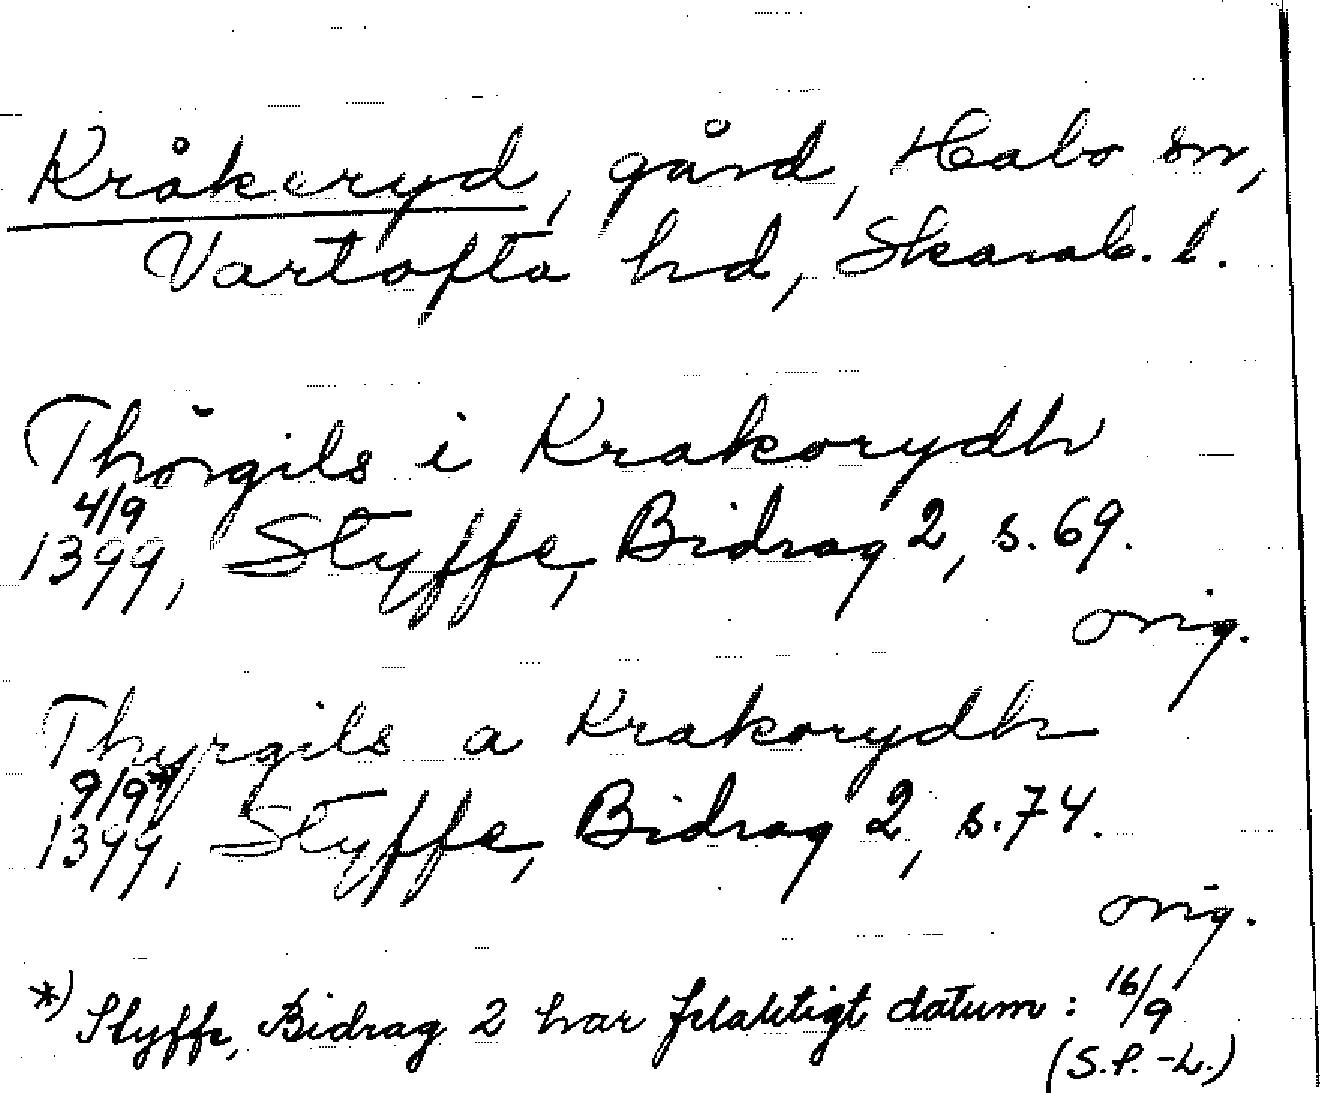 Kråkeryd, gård, Habo sn,
Vartofta hd, Skarab. l.
Thörgils i Krakorydh
4/9
1399, Styffe, Bidrag 2, s. 69.
orig.
Thyrgils a Krakorydh
9/9*)
1399, Styffe, Bidrag 2, s. 74.
orig.
*) Styffe, Bidrag 2 har felaktigt datum: 16/9
(S.P.-L.)